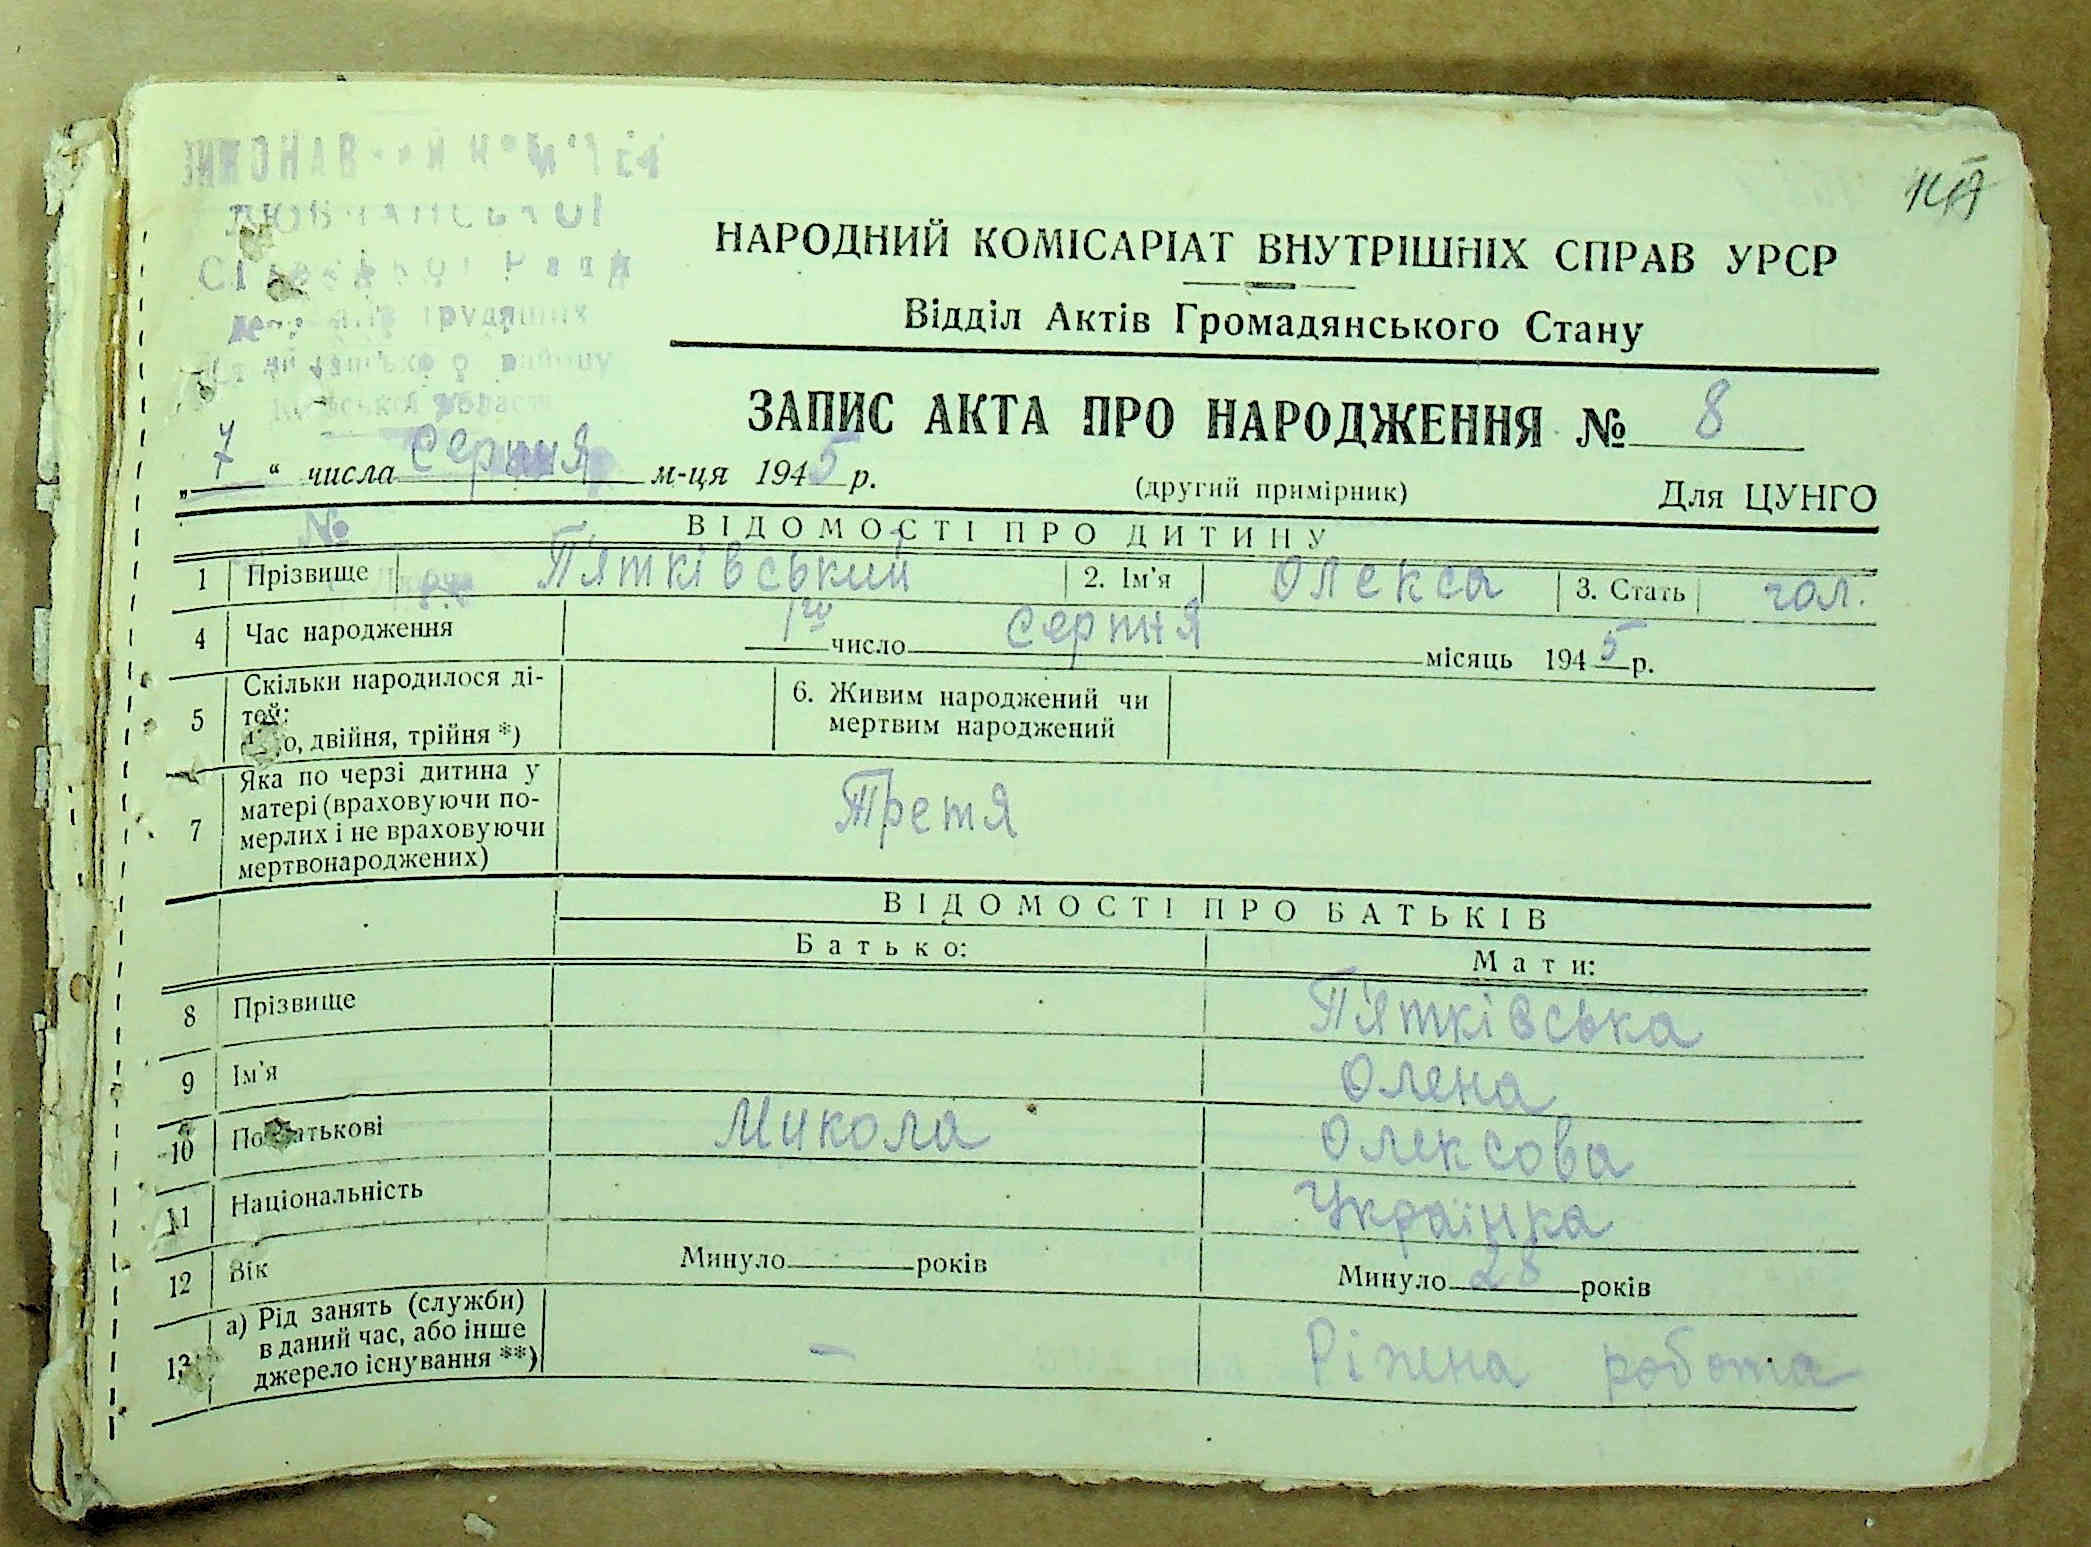 ВИКОНАВЧИЙ КОМІТЕТ
Сільської Ради
депутатів трудящих
району
Київської області
НАРОДНИЙ КОМІСАРІАТ ВНУТРІШНІХ СПРАВ УРСР
Відділ Актів Громадянського Стану
ЗАПИС АКТА ПРО НАРОДЖЕННЯ № 8
„7“ числа Серпня м-ця 1945 р. (другий примірник) Для ЦУНГО
№
ВІДОМОСТІ ПРО ДИТИНУ
1 Прізвище П'ятківський 2. Ім'я Олекса 3. Стать чол.
4 Час народження 1го число Серпня місяць 1945 р.
5 Скільки народилося ді-
тей:
о, двійня, трійня *)
6. Живим народжений чи
мертвим народжений
7 Яка по черзі дитина у
матері (враховуючи по-
мерлих і не враховуючи
мертвонароджених)
Третя
ВІДОМОСТІ ПРО БАТЬКІВ
Батько: Мати:
8 Прізвище П'ятківська
9 Ім'я Олена
10 По батькові Микола Олексова
11 Національність Українка
12 Вік Минуло років Минуло 28 років
13 а) Рід занять (служби)
в даний час, або інше
джерело існування **)
– Ріжна робота